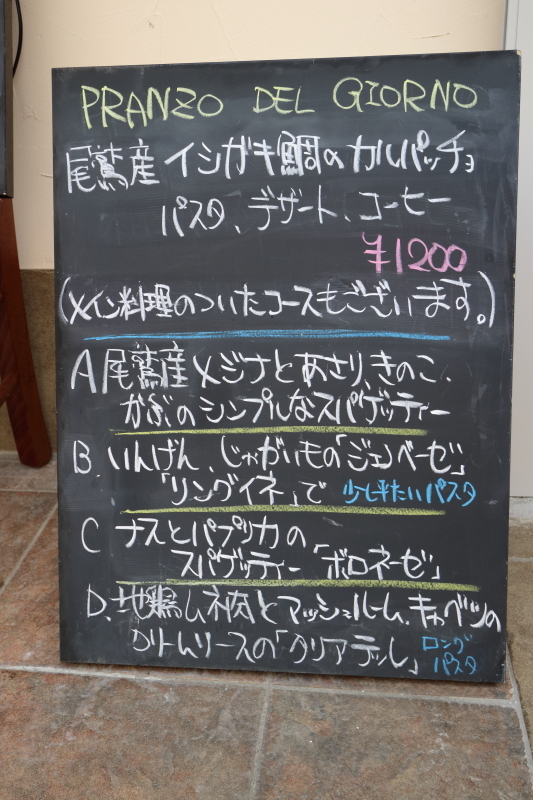 PRANZO DEL GIORNO
尾鷲産 イシガキ鯛のカルパッチョ
パスタ、デザート、コーヒー
¥1200
(メイン料理のついたコースもございます。)
A 尾鷲産 メジナとあさり、きのこ、
かぶのシンプルなスパゲッティー
B いんげん、じゃがいもの「ジェノベーゼ」
「リングイネ」で 少し平たいパスタ
C ナスとパプリカの
スパゲッティー「ボロネーゼ」
D. 地鶏ムネ肉とマッシュルーム、キャベツの
クリームソースの「タリアテッレ」 ロング
パスタ